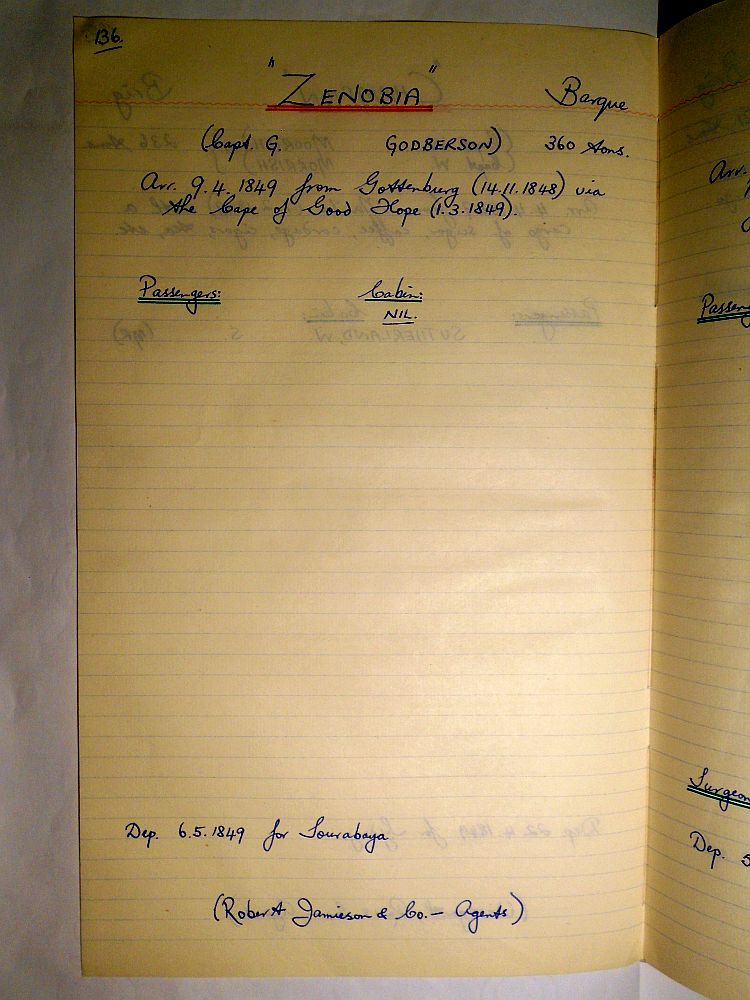 136.
"ZENOBIA" Barque
(Capt. G. GODBERSON) 360 tons.
Arr. 9.4.1849 from Gottenburg (14.11.1848) via
the Cape of Good Hope (1.3.1849).
Passengers: Cabin:
NIL.
Dep. 6.5.1849 for Sourabaya
(Robert Jamieson & Co. – Agents)
Arr.
Dep. 5